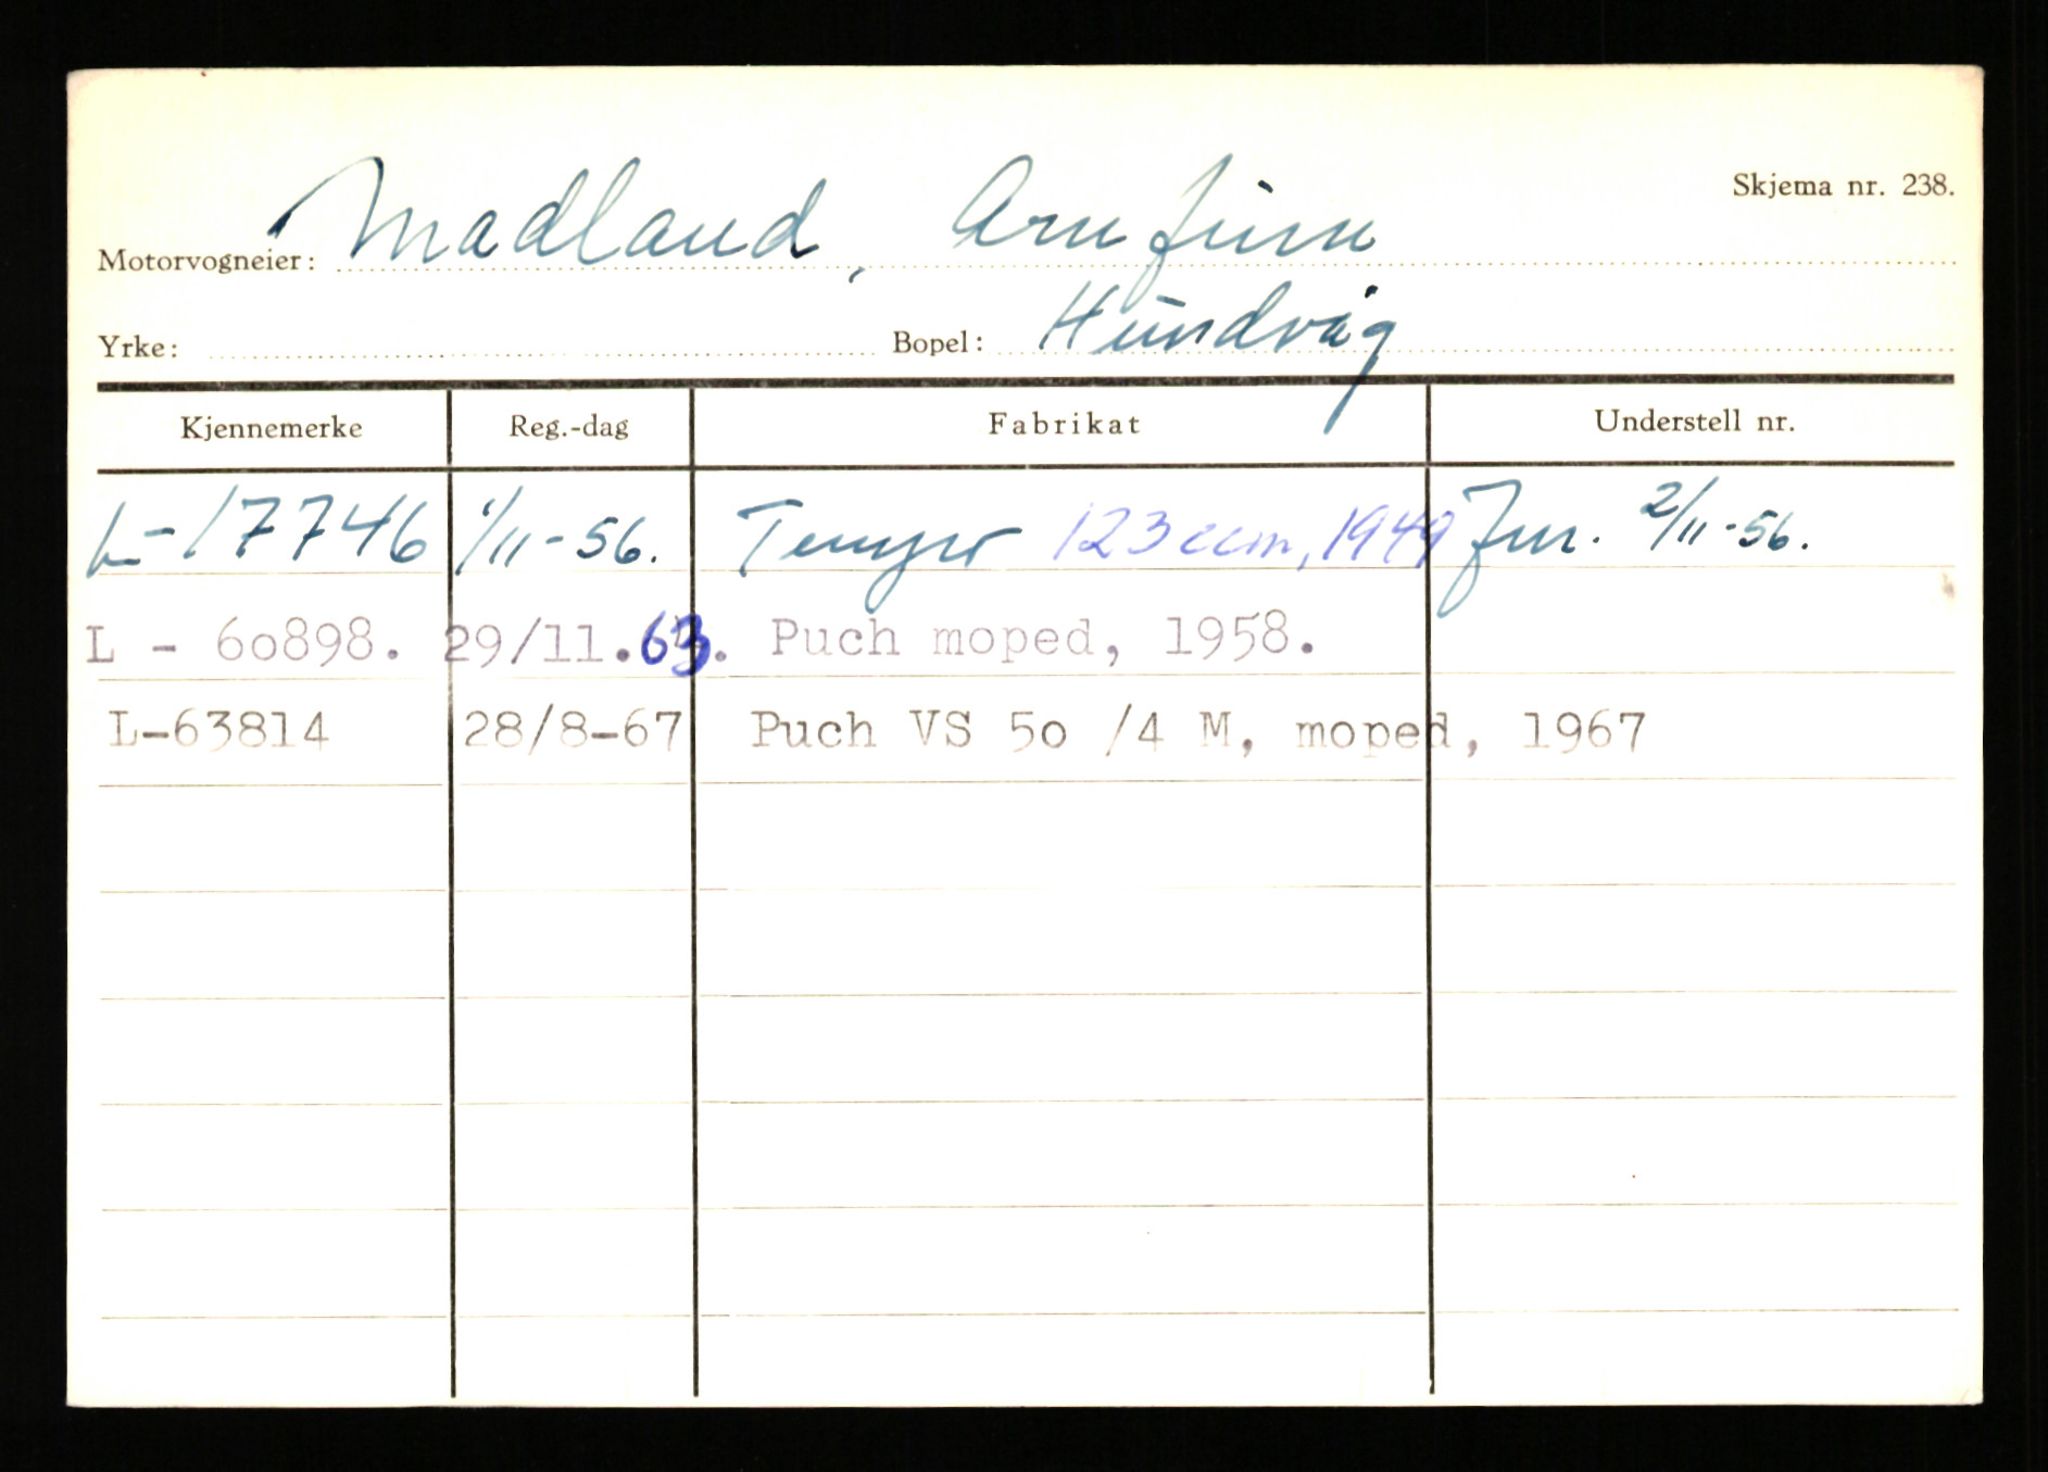 Skjema nr. 238.
Motorvogneier: Madland, Arnfinn
Yrke: Bopel: Hundvåg
Kjennemerke Reg.-dag Fabrikat Understell nr.
L-17746 1/11-56. Tempo 123 ccm, 1949 2/11-56.
L - 60898. 29/11.63. Puch moped, 1958.
L-63814 28/8-67 Puch VS 50 /4 M, moped, 1967